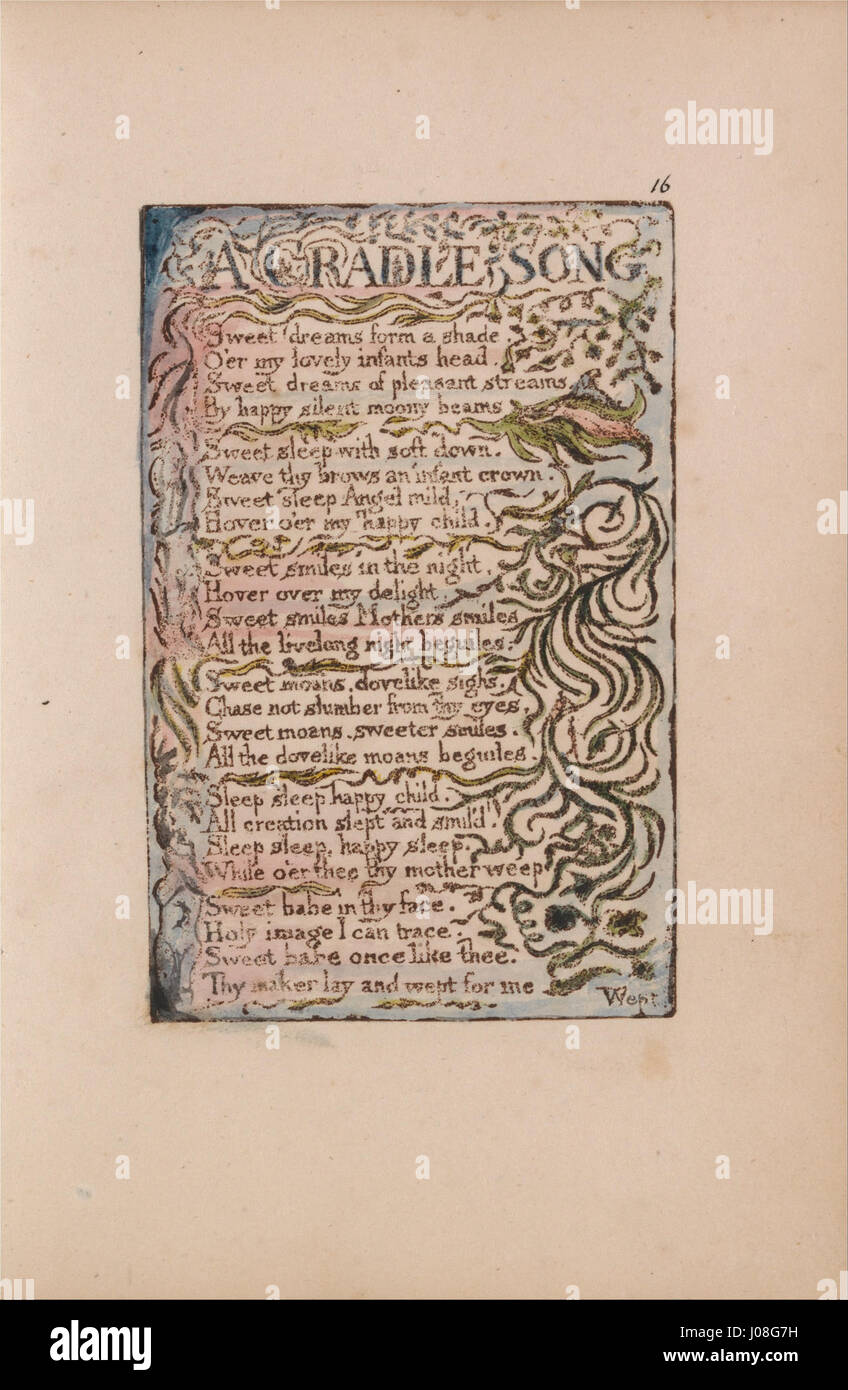 16
A CRADLE SONG
Sweet dreams form a shade.
O'er my lovely infants head.
Sweet dreams of pleasant streams.
By happy silent moony beams
Sweet sleep with soft down.
Weave thy brows an infant crown.
Sweet sleep Angel mild,
Hover o'er my happy child.
Sweet smiles in the night.
Hover over my delight.
Sweet smiles Mothers smiles
All the livelong night beguiles.
Sweet moans, dovelike sighs.
Chase not slumber from thy eyes.
Sweet moans, sweeter smiles.
All the dovelike moans beguiles.
Sleep sleep happy child.
All creation slept and smil'd.
Sleep sleep, happy sleep.
While o'er thee thy mother weep
Sweet babe in thy face.
Holy image I can trace.
Sweet babe once like thee.
Thy maker lay and wept for me
Wept
alamy
a
alamy stock photo
Image ID: J08G7H
www.alamy.com